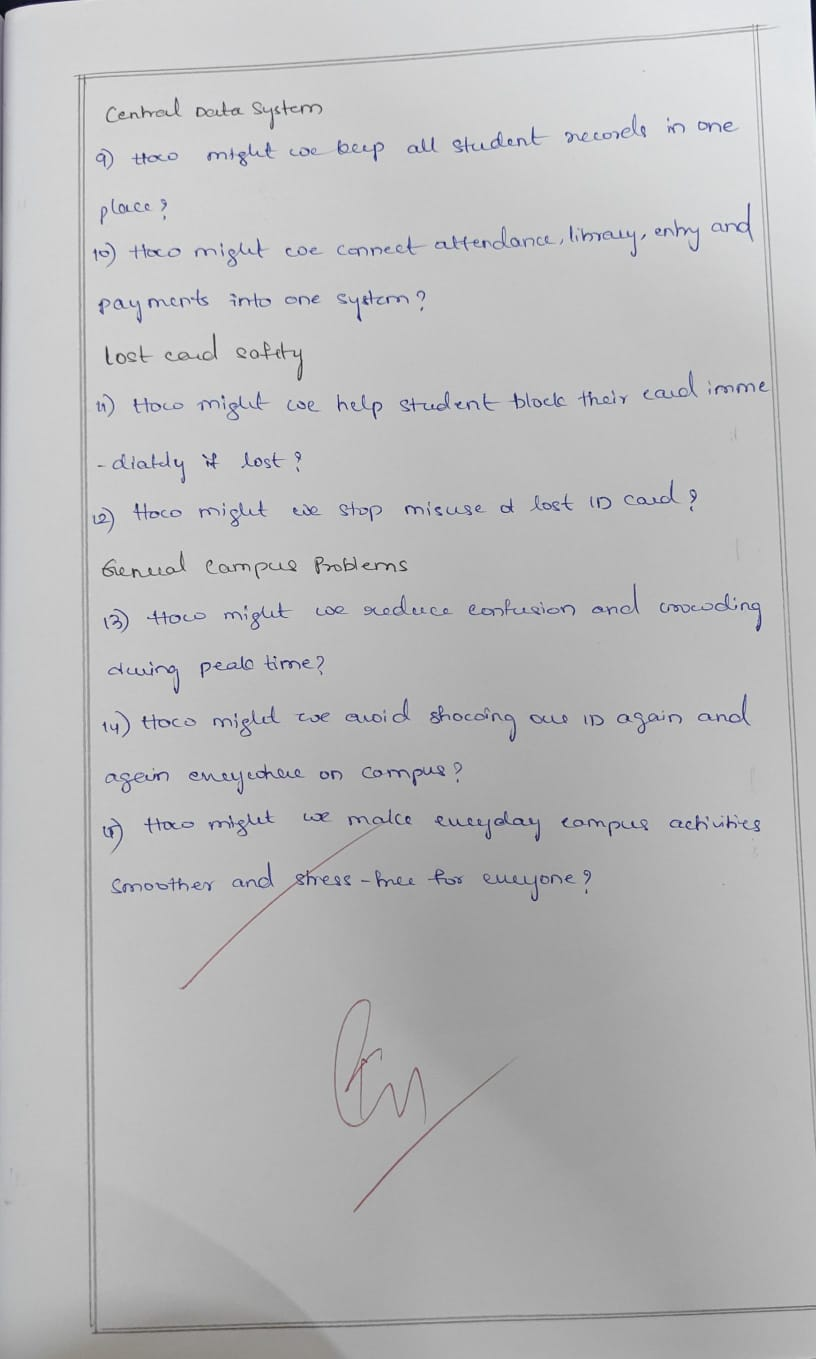 Central Data System
9) How might we keep all student records in one
place?
10) How might we connect attendance, library, entry and
payments into one system?
Lost card safety
11) How might we help student block their card imme
-diately if lost?
12) How might we stop misuse of lost ID card?
General Campus Problems
13) How might we reduce confusion and crowding
during peak time?
14) How might we avoid showing our ID again and
again everywhere on campus?
15) How might we make everyday campus activities
smoother and stress-free for everyone?